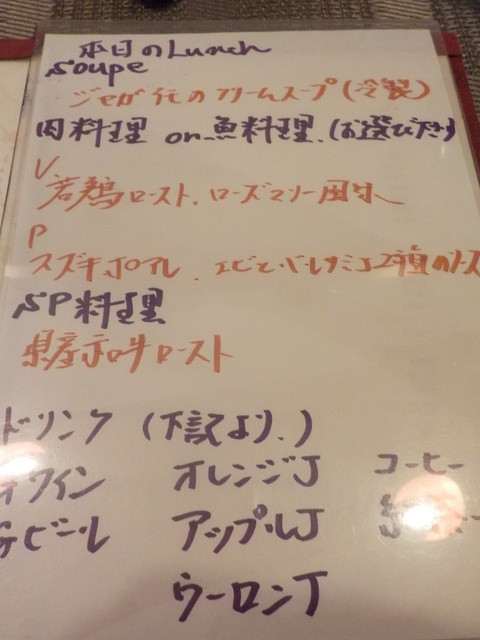 本日のLunch
Soupe
ジャガ芋のクリームスープ(冷製)
肉料理 or 魚料理.(お選び下さい)
V
若鶏ロースト、ローズマリー風味
P
スズキポアレ、エビとバルサミコ2種のソース
SP料理
県産和牛ロースト
ドリンク (下記より.)
ワイン オレンジJ コーヒー
ビール アップルJ
ウーロンT